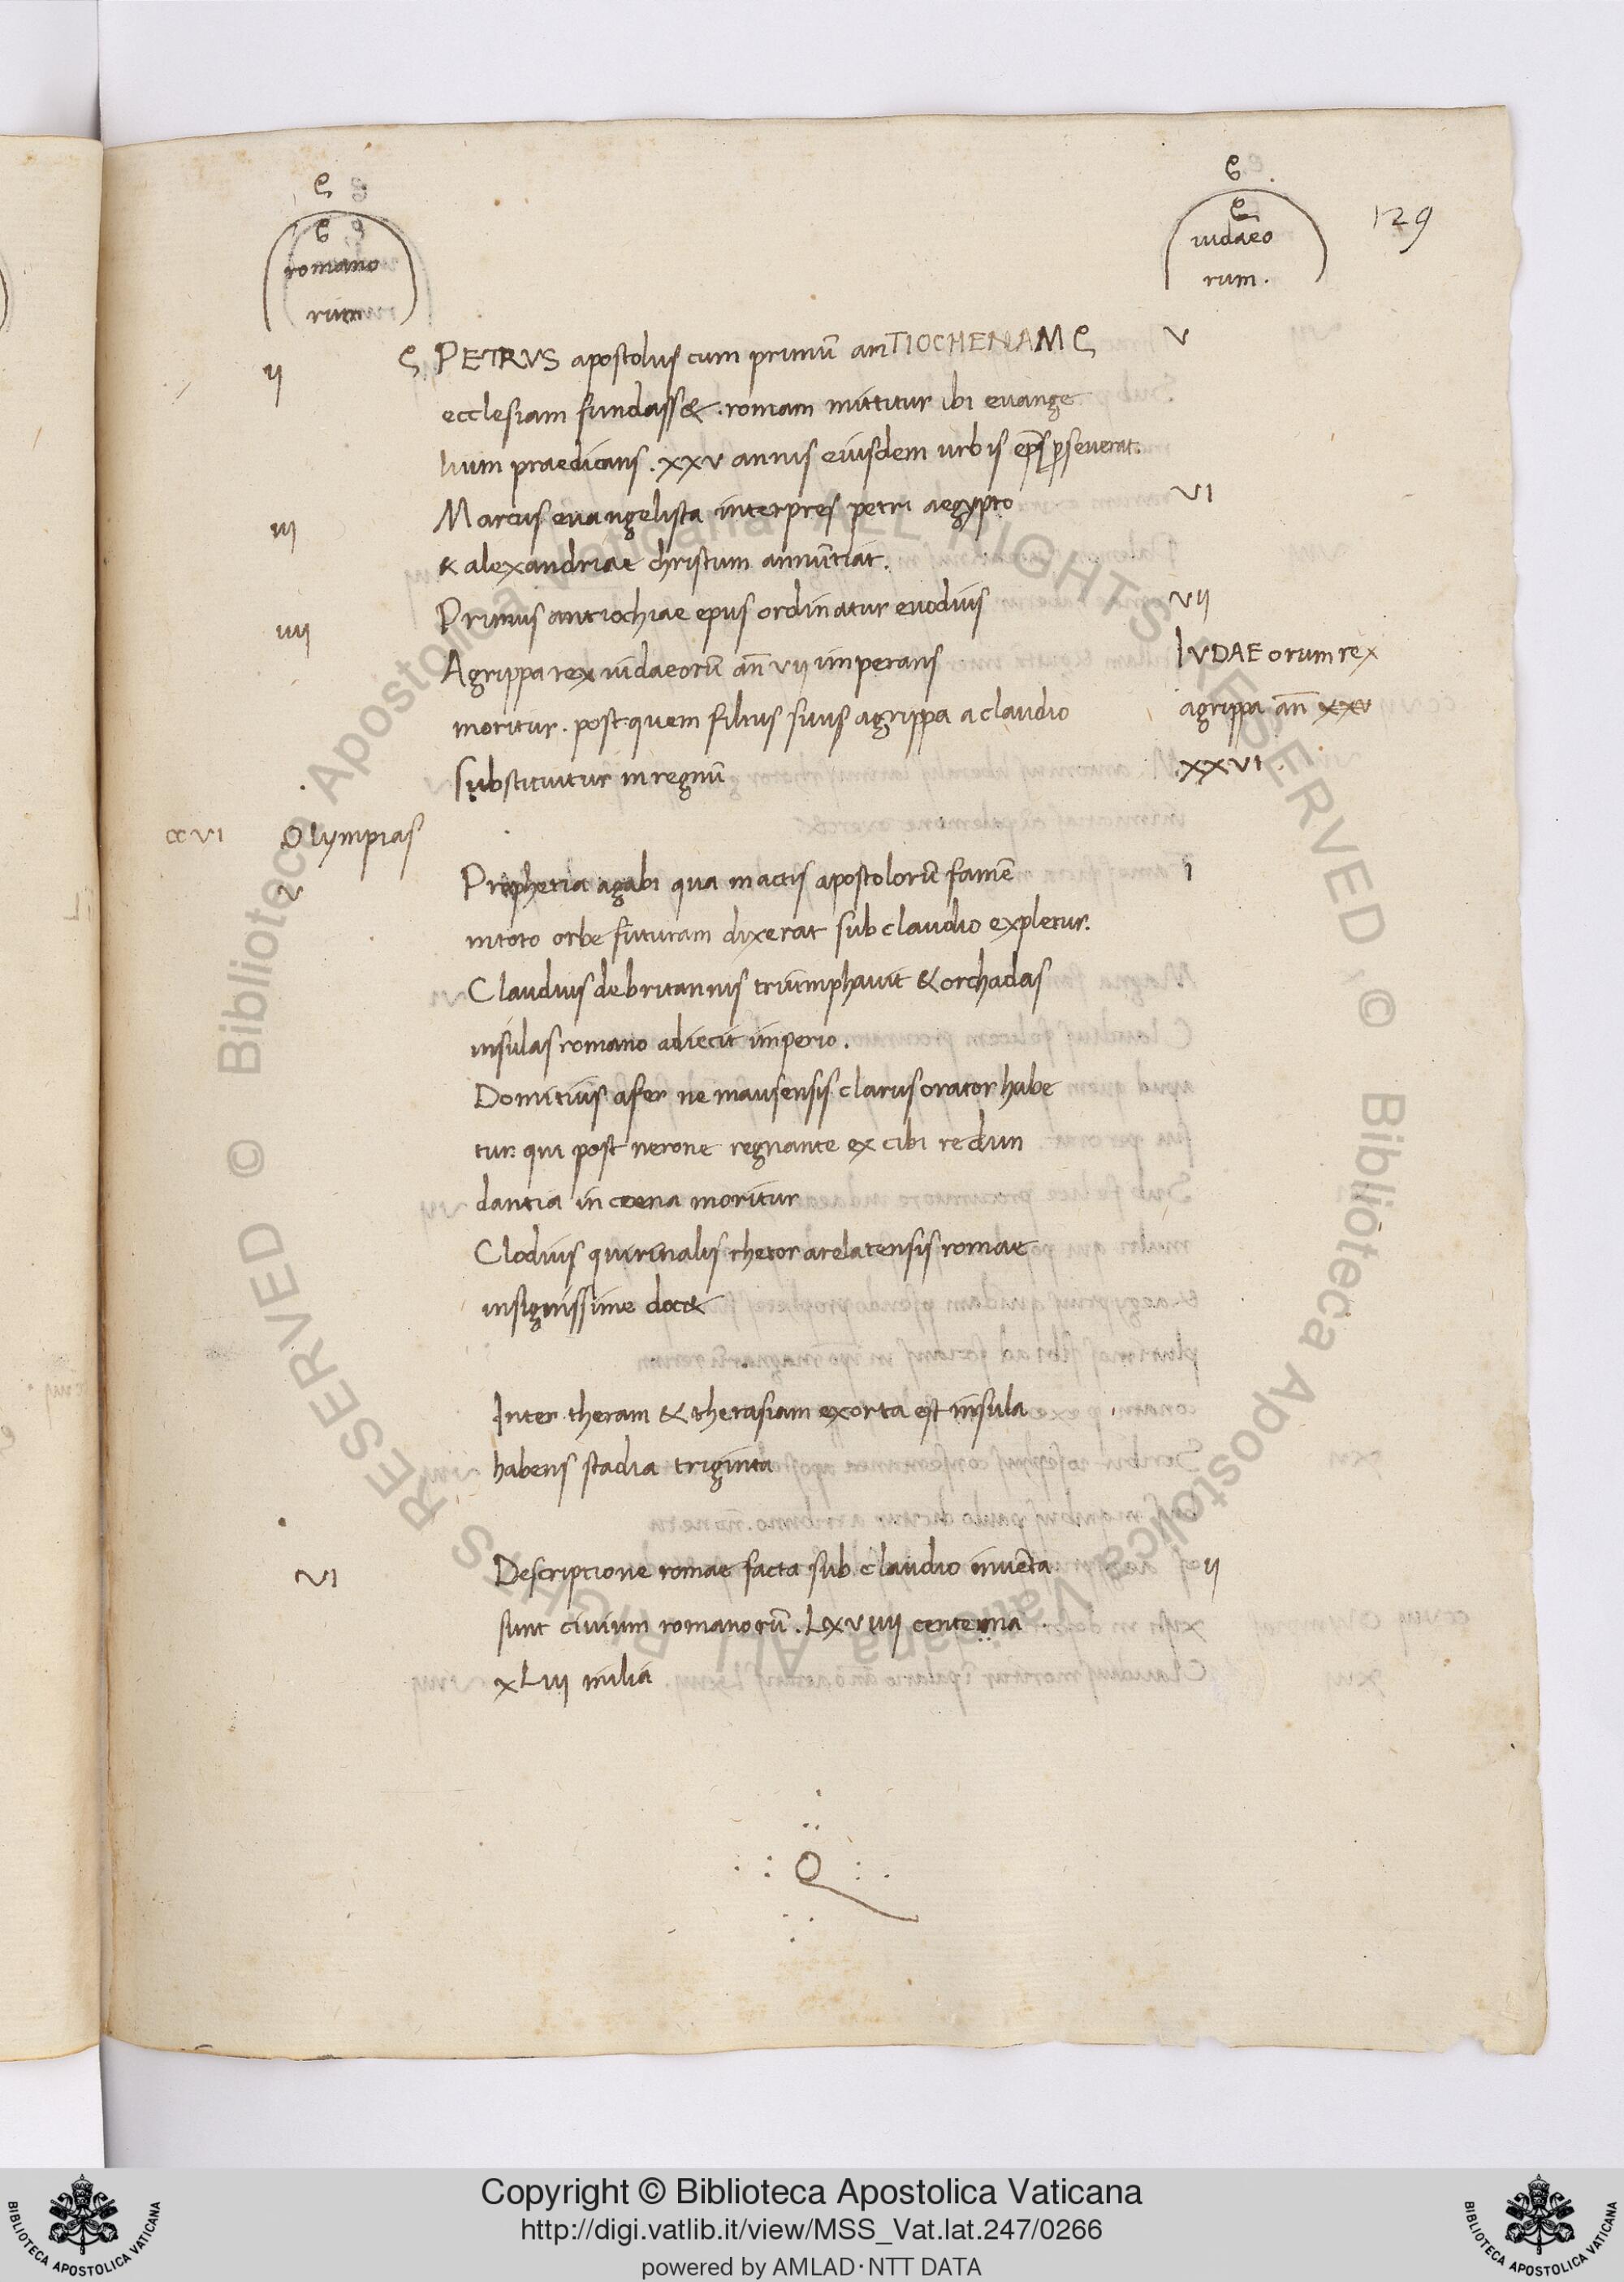 romano
rum
iudaeo
rum.
129
ii PETRVS apostolus cum primū anTIOCHENAM v
ecclesiam fundass&. romam mittitur ibi euange
lium praedicans. xxv annis eiusdem urbis ep̄s ꝑseuerat.
iii Marcus euangelista interpres petri aegypto vi
& alexandriae christum annūtiat.
iiii Primus antiochiae epus ordinatur euodius vii
Agrippa rex iudaeorū añ vii imperans IVDAEorum rex
moritur. post quem filius suus agrippa a claudio agrippa añ xxv
substituitur in regnū xxvi.
ccvi Olympias
v Prophetia agabi qua in actis apostolorū famē i
in toto orbe futuram dixerat sub claudio expletur.
Claudius de britannis triumphauit & orchadas
insulas romano adiecit imperio.
Domitius afer nemausensis clarus orator habe
tur: qui post nerone regnante ex cibi redun
dantia in coena moritur
Clodius quirinalis rhetor arelatensis romae
insignissime doc&
Inter theram & therasiam exorta est insula
habens stadia triginta
vi Descriptione romae facta sub claudio inuēta ii
sunt ciuium romanorū. Lxviiii centena
xLiii milia
Copyright © Biblioteca Apostolica Vaticana
http://digi.vatlib.it/view/MSS_Vat.lat.247/0266
powered by AMLAD·NTT DATA
BIBLIOTECA APOSTOLICA VATICANA
BIBLIOTECA APOSTOLICA VATICANA
© Biblioteca Apostolica Vaticana, ALL RIGHTS RESERVED, © Biblioteca Apostolica Vaticana, ALL RIGHTS RESERVED